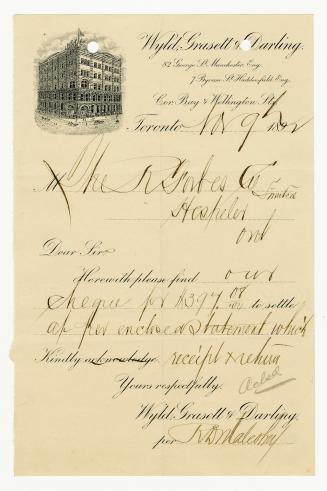 Wyld, Grasett & Darling.
82 George St. Manchester, Eng.
7 Byram St. Huddersfield Eng.
Cor. Bay & Wellington Sts.
Toronto Nov 9th 1892
M The R Forbes Co
Limited
Hespeler
Ont
Dear Sir
Herewith please find our
cheque for $397 08/100 to settle
as per enclosed statement which
Kindly acknowledge. receipt & return
Yours respectfully.
Acked
Wyld, Grasett & Darling.
per R D Malcolm